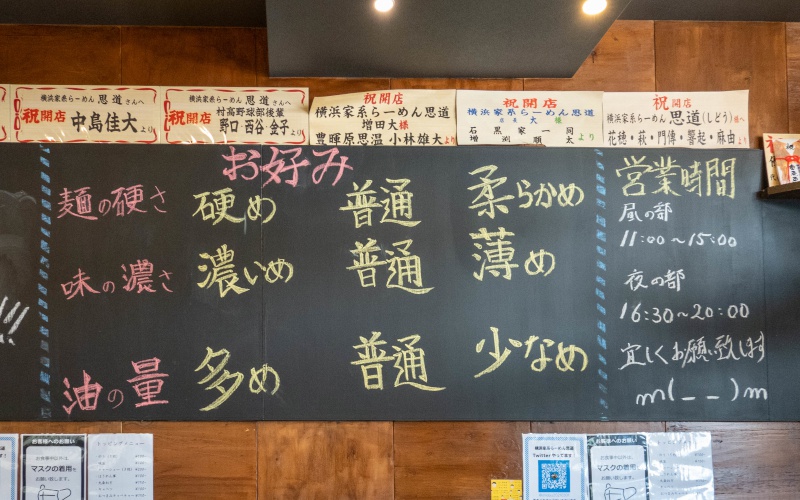 横浜家系らーめん 思道さんへ
祝開店 中島佳大より
横浜家系らーめん 思道さんへ
祝開店
村高野球部後輩
野口・西谷・金子より
祝開店
横浜家系らーめん思道
増田大様
豊暉原思温 小林雄大より
祝開店
横浜家系らーめん思道
大 様
石黒家一同
増渕順太 より
祝開店
横浜家系らーめん 思道(しどう)さんへ
花穂・萩・門傳・響起・麻由より
お好み
麺の硬さ 硬め 普通 柔らかめ
味の濃さ 濃いめ 普通 薄め
油の量 多め 普通 少なめ
営業時間
昼の部
11:00～15:00
夜の部
16:30～20:00
宜しくお願い致します
m(_ _)m
!!
お客様へのお願い
マスクの着用
お願い致します
トッピングメニュー
横浜家系らーめん思道
Twitter やってます
お客様へのお願い
マスクの着用
お願い致します